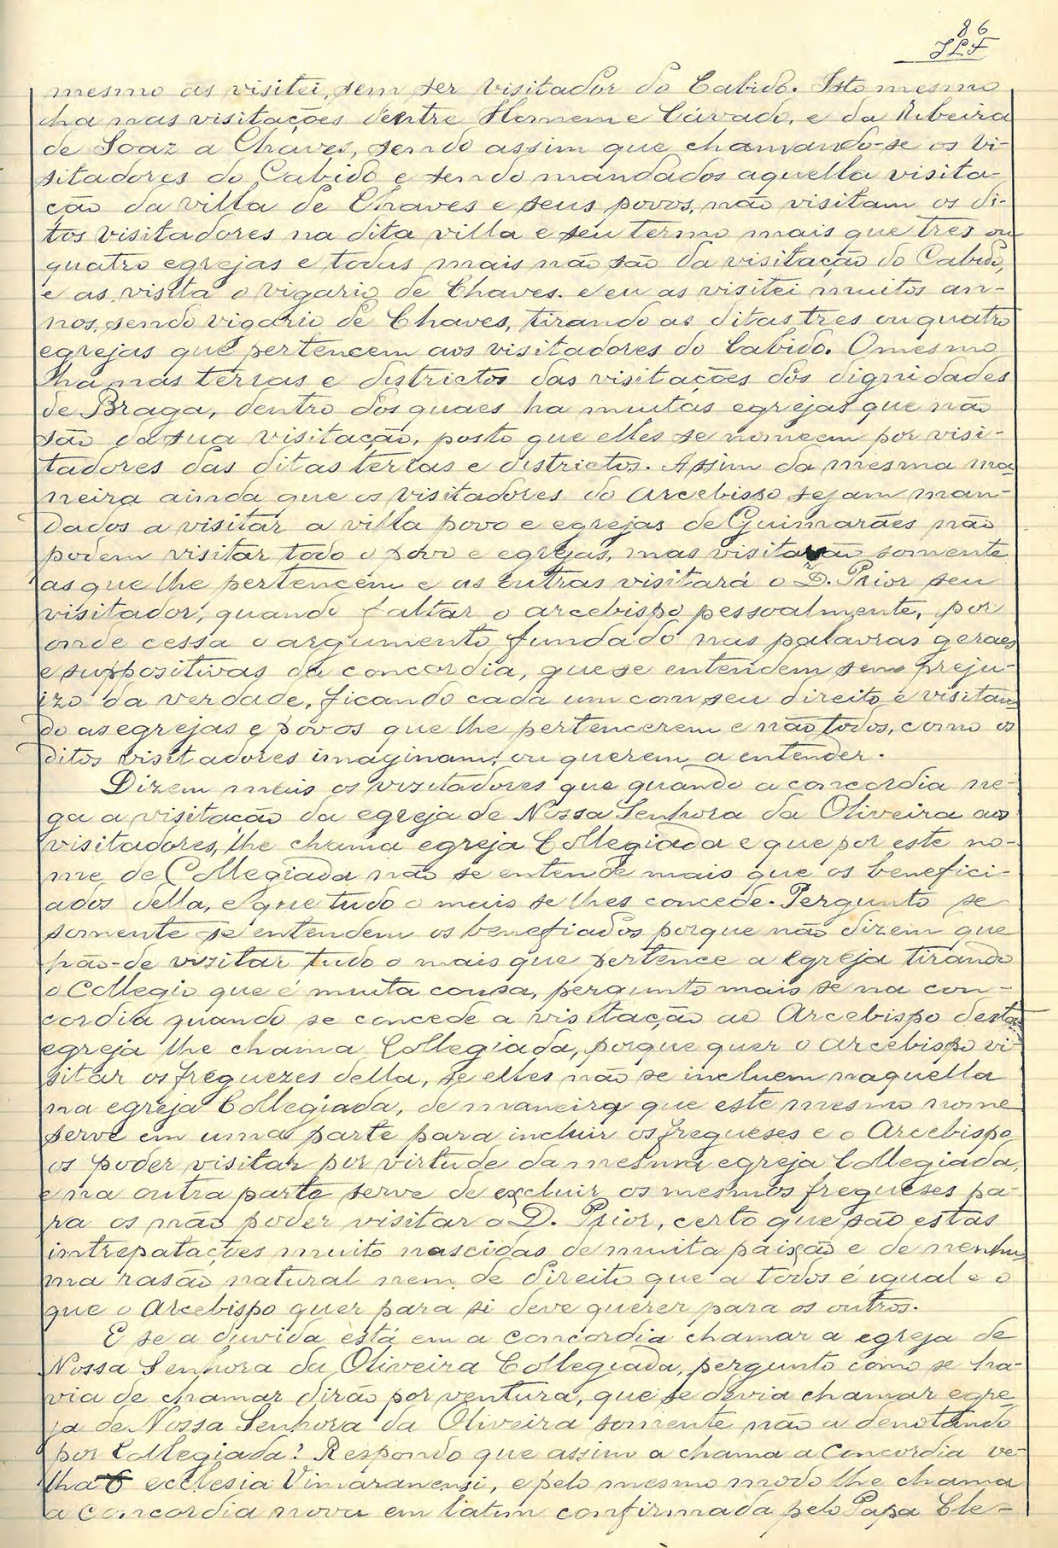 86
JLF
mesmo as visitei, sem ser visitador do Cabido. Isto mesmo
ha nas visitações d'entre Homem e Cávado, e da Ribeira
de Soaz a Chaves, sendo assim que chamando-se os vi-
sitadores do Cabido e sendo mandados aquella visita-
ção da villa de Chaves e seus povos, não visitam os di-
tos visitadores na dita villa e seu termo mais que tres ou
quatro egrejas e todas mais não são da visitação do Cabido,
e as visita o vigario de Chaves. e eu as visitei muitos an-
nos, sendo vigario de Chaves, tirando as ditas tres ou quatro
egrejas que pertencem aos visitadores do Cabido. O mesmo
ha nas terras e districtos das visitações dos dignidades
de Braga, dentro dos quaes ha muitas egrejas que não
são da sua visitação, posto que elles se nomeem por visi-
tadores das ditas terras e districtos. Assim da mesma ma-
neira ainda que os visitadores do Arcebispo sejam man-
dados a visitar a villa povo e egrejas de Guimarães não
podem visitar todo o povo e egrejas, mas visitarão somente
as que lhe pertencem e as outras visitará o D. Prior seu
visitador, quando faltar o arcebispo pessoalmente, por
onde cessa o argumento fundado nas palavras geraes
e suppositivas da concordia, que se entendem sem preju-
izo da verdade, ficando cada um com seu direito e visitan
do as egrejas e povos que lhe pertencerem e não todos, como os
ditos visitadores imaginam, ou querem a entender.
Dizem mais os vizitadores que quando a concordia ne-
ga a visitação da egreja de Nossa Senhora da Oliveira aos
visitadores, lhe chama egreja Collegiada e que por este no-
me de Collegiada não se entende mais que os benefici-
ados della, e que tudo o mais se lhes concede. Pergunto se
somente se entendem os benefiados porque não dizem que
hão-de vizitar tudo o mais que pertence a egreja tirando
o Collegio que é muita cousa, pergunto mais se na con-
cordia quando se concede a visitação ao Arcebispo desta
egreja lhe chama Collegiada, porque quer o Arcebispo vi
sitar os freguezes della, se elles não se incluem naquella
na egreja Collegiada, de maneira que este mesmo nome
serve em uma parte para incluir os fregueses e o Arcebispo
os poder visitar por virtude da mesma egreja Collegiada,
e na outra parte serve de excluir os mesmos fregueses pa-
ra os não poder visitar o D. Prior, certo que são estas
intrepatações muito nascidas de muita paixão e de nenhu
ma rasão natural nem de direito que a todos é igual e o
que o Arcebispo quer para si deve querer para os outros.
E se a duvida está em a concordia chamar a egreja de
Nossa Senhora da Oliveira Collegiada, pergunto como se ha-
via de chamar dirão por ventura, que se devia chamar egre-
ja de Nossa Senhora da Oliveira somente não a denotando
por Collegiada? Respondo que assim a chama a concordia ve-
lha ecclesia Vimaranensi, e pelo mesmo modo lhe chama
a concordia nova em latim confirmada pelo Papa Cle-